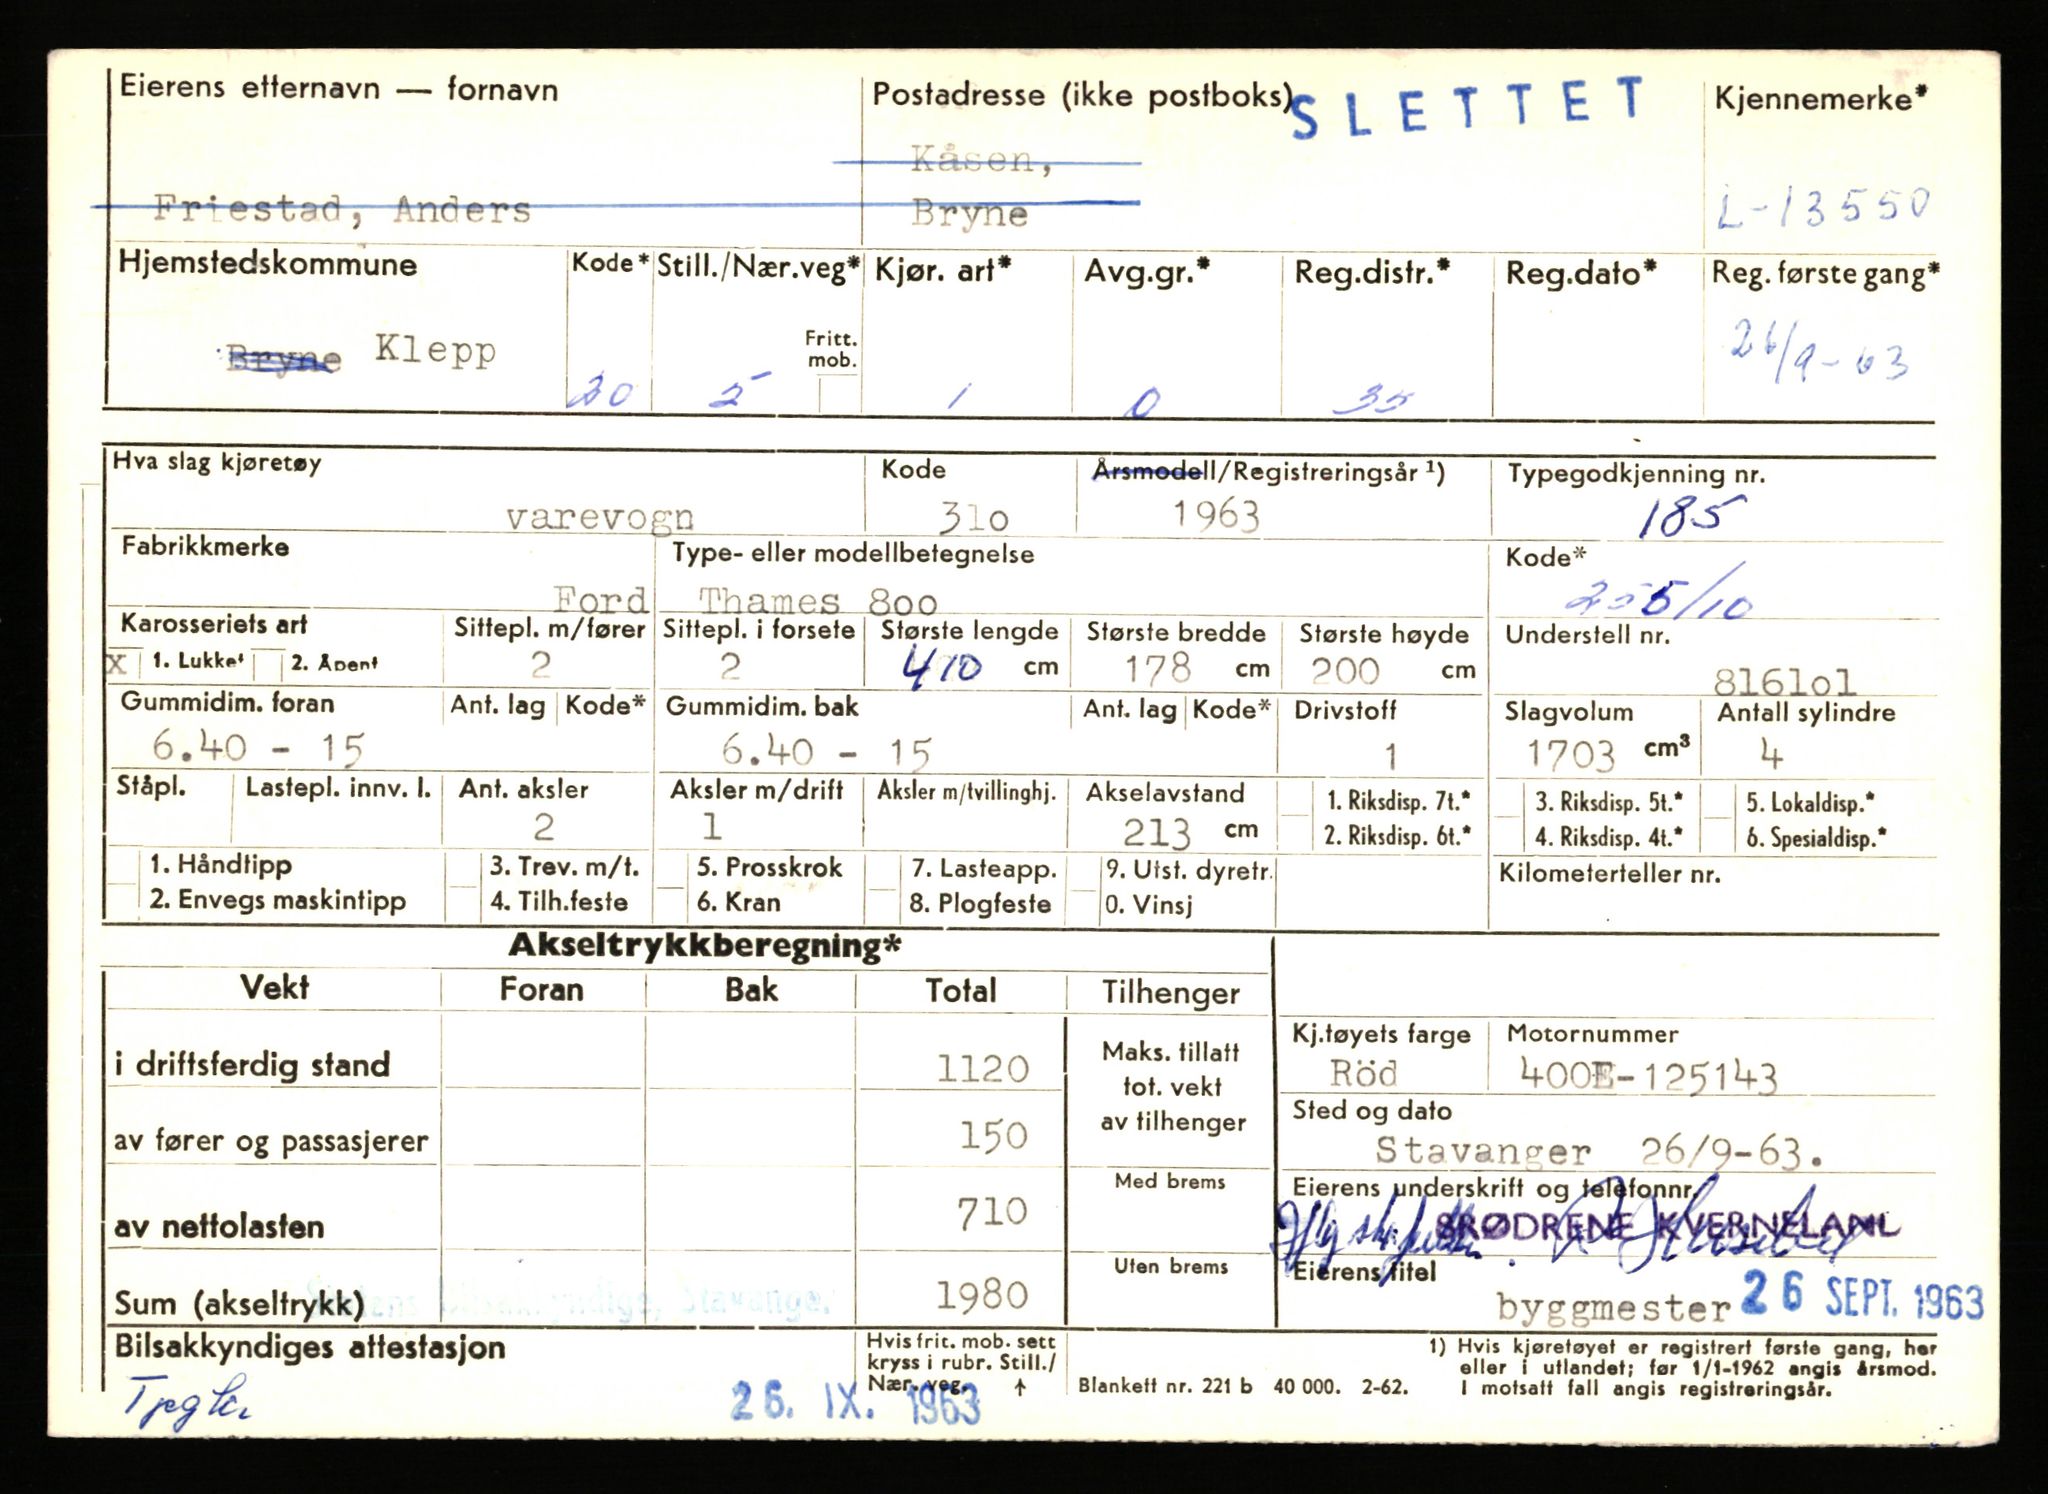 Eierens etternavn — fornavn
Postadresse (ikke postboks)
SLETTET
Kjennemerke*
Kåsen,
Friestad, Anders
Bryne
L-13550
Hjemstedskommune
Kode*
Still./Nær.veg*
Kjør. art*
Avg.gr.*
Reg.distr.*
Reg.dato*
Reg. første gang*
Fritt.
mob.
Bryne Klepp
20
5
1
0
35
26/9-63
Hva slag kjøretøy
Kode
Årsmodell/Registreringsår ¹)
Typegodkjenning nr.
varevogn
31o
1963
185
Fabrikkmerke
Type- eller modellbetegnelse
Kode*
Ford
Thames 8oo
255/10
Karosseriets art
Sittepl. m/fører
Sittepl. i forsete
Største lengde
Største bredde
Største høyde
Understell nr.
X 1. Lukket 2. Åpent
2
2
410 cm
178 cm
200 cm
8161o1
Gummidim. foran
Ant. lag
Kode*
Gummidim. bak
Ant. lag
Kode*
Drivstoff
Slagvolum
Antall sylindre
6.40 - 15
6.40 - 15
1
1703 cm³
4
Ståpl.
Lastepl. innv. l.
Ant. aksler
Aksler m/drift
Aksler m/tvillinghj.
Akselavstand
1. Riksdisp. 7t.*
3. Riksdisp. 5t.*
5. Lokaldisp.*
2
1
213 cm
2. Riksdisp. 6t.*
4. Riksdisp. 4t.*
6. Spesialdisp.*
1. Håndtipp
3. Trev. m/t.
5. Prosskrok
7. Lasteapp.
9. Utst. dyretr.
Kilometerteller nr.
2. Envegs maskintipp
4. Tilh.feste
6. Kran
8. Plogfeste
0. Vinsj
Akseltrykkberegning*
Vekt
Foran
Bak
Total
Tilhenger
Kj.tøyets farge
Motornummer
i driftsferdig stand
1120
Maks. tillatt
tot. vekt
av tilhenger
Röd
400E-125143
Sted og dato
av fører og passasjerer
150
Stavanger 26/9-63.
Med brems
Eierens underskrift og telefonnr.
av nettolasten
710
BRØDRENE KVERNELAND
Uten brems
Eierens titel
Sum (akseltrykk)
Statens Bilsakkyndige, Stavanger
1980
byggmester
26 SEPT. 1963
Bilsakkyndiges attestasjon
Hvis frit. mob. sett
kryss i rubr. Still./
Nær. veg. ↑
26. IX. 1963
Blankett nr. 221 b 40 000. 2-62.
1) Hvis kjøretøyet er registrert første gang, her
eller i utlandet; før 1/1-1962 angis årsmod.
I motsatt fall angis registreringsår.